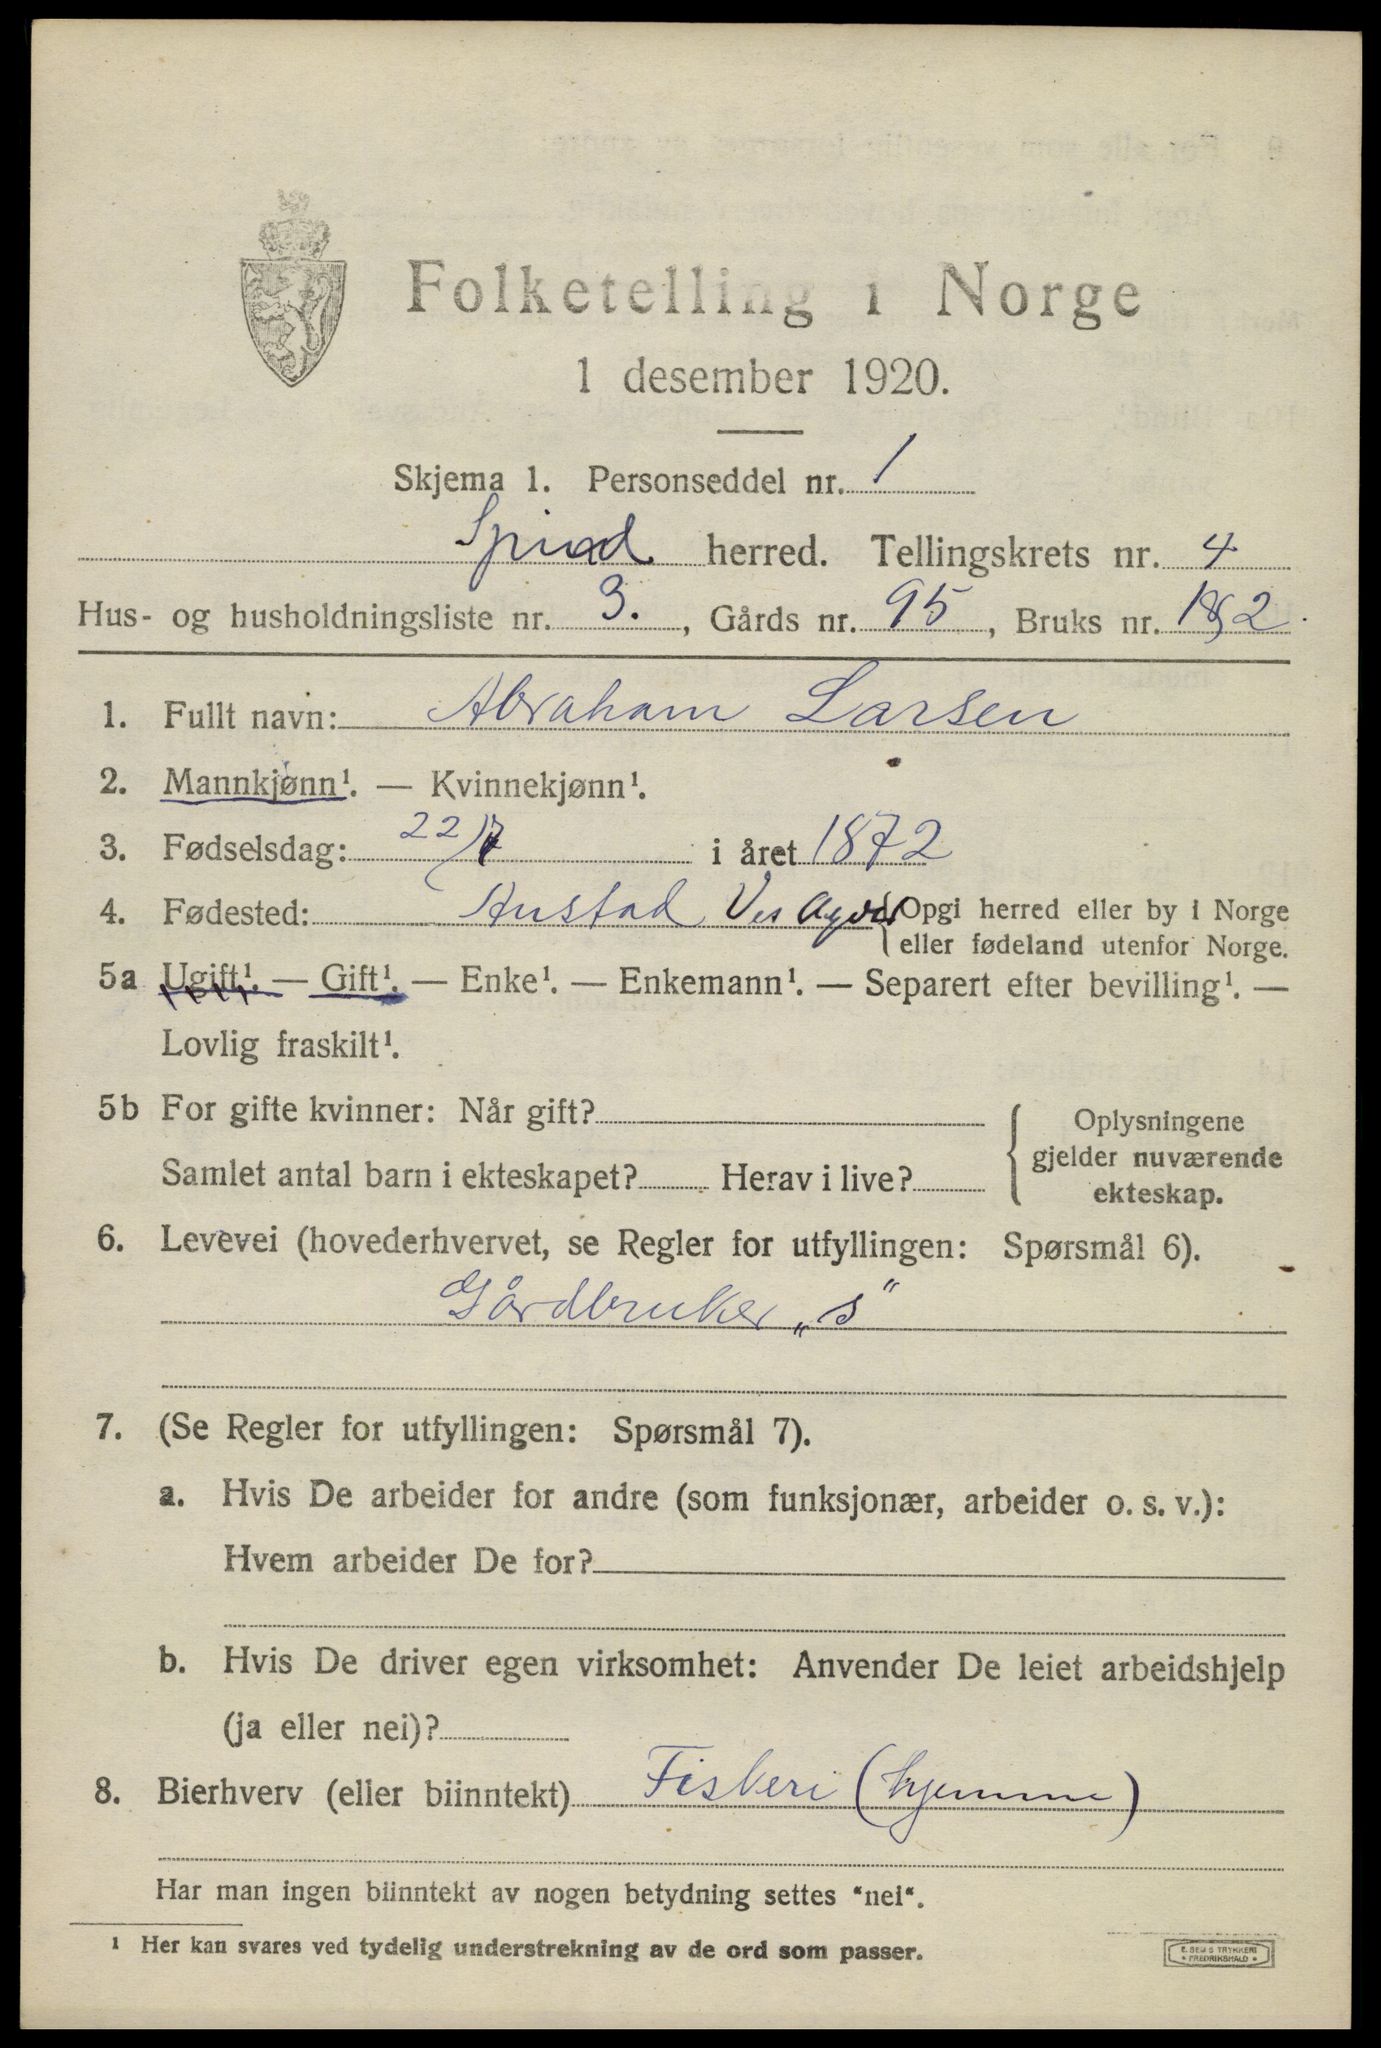 Folketelling i Norge
1 desember 1920.
Skjema 1. Personseddel nr. 1
Spind herred. Tellingskrets nr. 4
Hus- og husholdningsliste nr. 3. , Gårds nr. 95 , Bruks nr. 1&2.
1. Fullt navn: Abraham Larsen
2. Mannkjønn¹. — Kvinnekjønn¹.
3. Fødselsdag: 22/7 i året 1872
4. Fødested: Austad Ves Agder {Opgi herred eller by i Norge
eller fødeland utenfor Norge.
5a Ugift¹. — Gift¹. — Enke¹. — Enkemann¹. — Separert efter bevilling¹. —
Lovlig fraskilt¹.
5b For gifte kvinner: Når gift?
Samlet antal barn i ekteskapet? Herav i live?
Oplysningene
gjelder nuværende
ekteskap.
6. Levevei (hovederhvervet, se Regler for utfyllingen: Spørsmål 6).
Gårdbruker „s“
7. (Se Regler for utfyllingen: Spørsmål 7).
a. Hvis De arbeider for andre (som funksjonær, arbeider o. s. v.):
Hvem arbeider De for?
b. Hvis De driver egen virksomhet: Anvender De leiet arbeidshjelp
(ja eller nei)?
8. Bierhverv (eller biinntekt) Fiskeri (hjemme)
Har man ingen biinntekt av nogen betydning settes "nei".
¹ Her kan svares ved tydelig understrekning av de ord som passer.
E. SEM'S TRYKKERI
FREDRIKSHALD